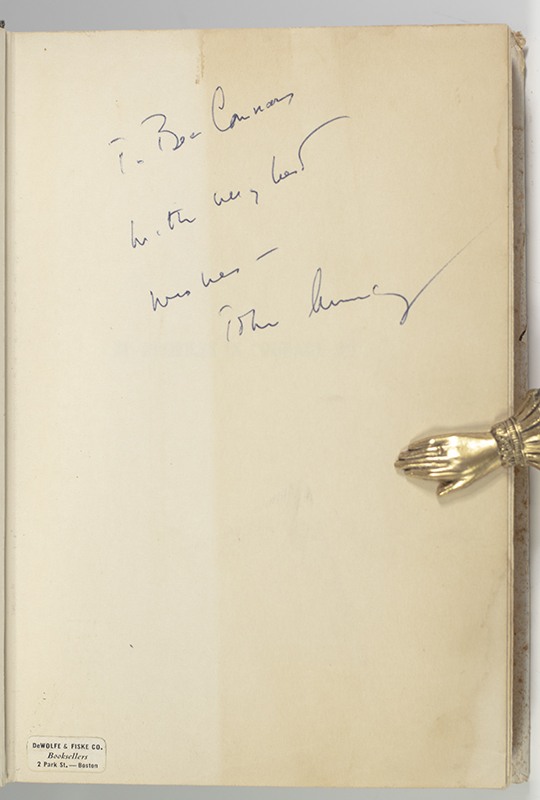 To Ben Connors
with very best
wishes —
John
DeWOLFE & FISKE CO.
Booksellers
2 Park St. — Boston